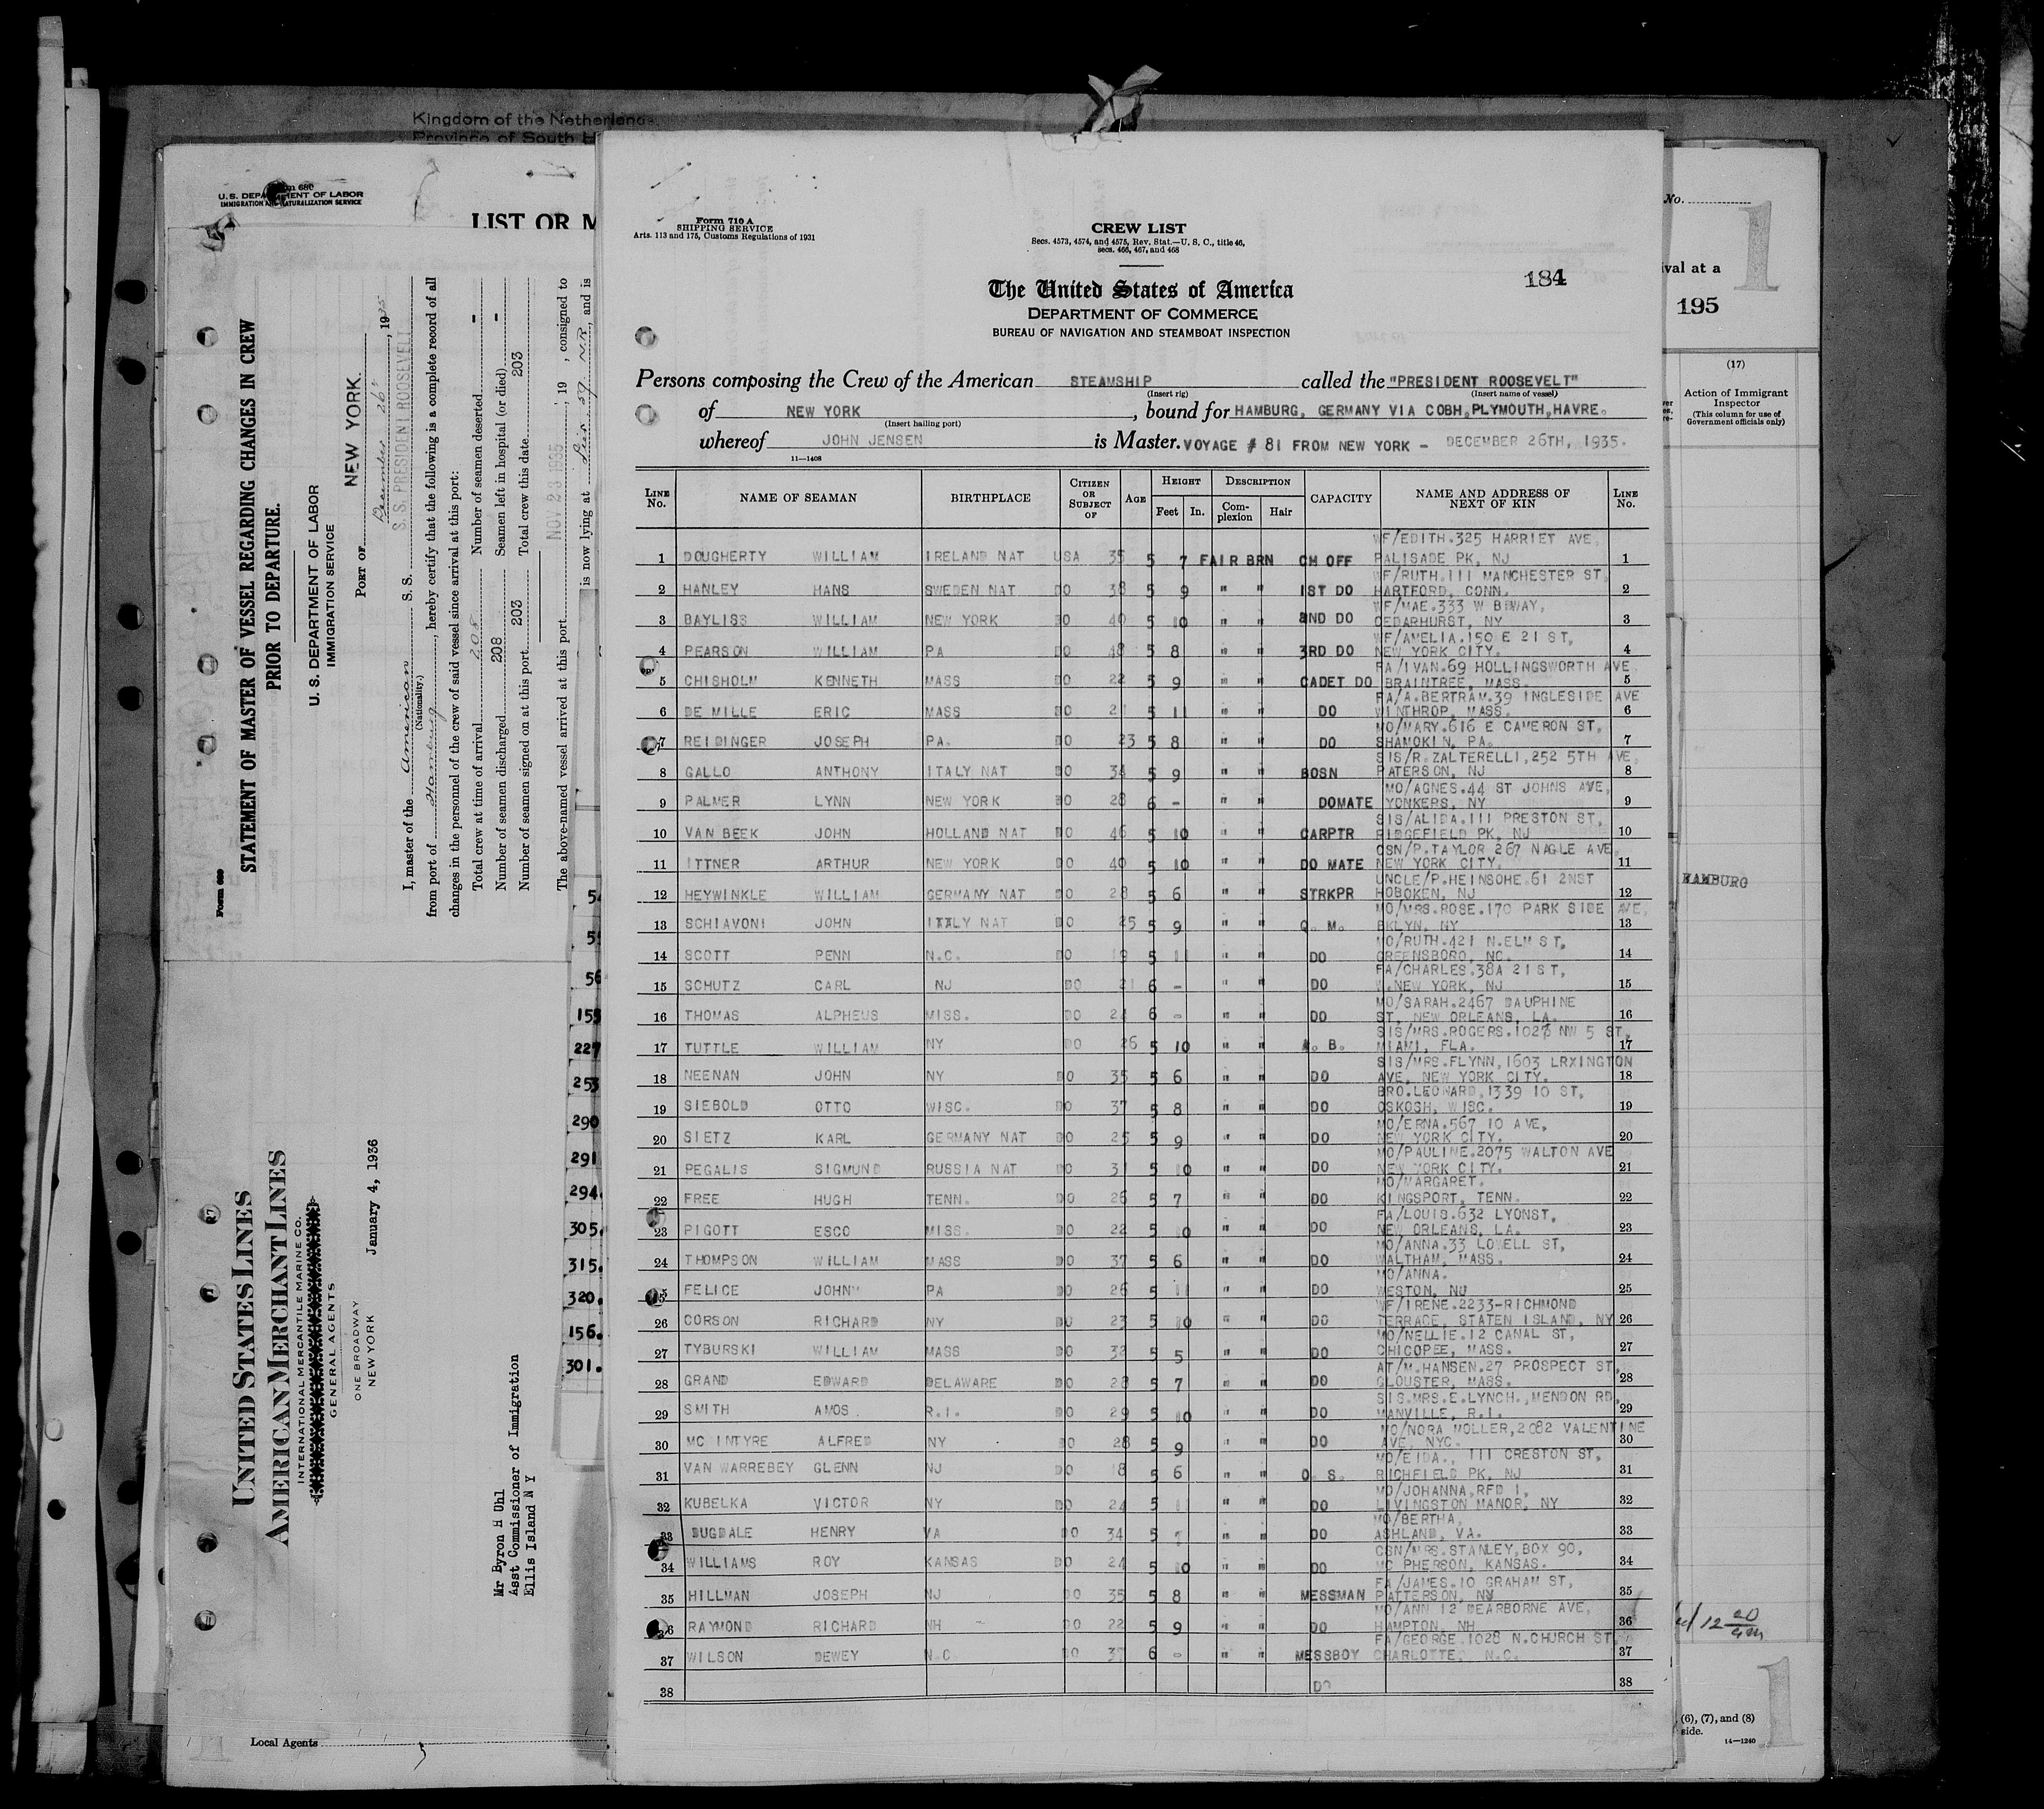 Kingdom of the Netherlands
Province of South H
U. S. DEPARTMENT OF LABOR
IMMIGRATION AND NATURALIZATION SERVICE
LIST OR M
Form 689
STATEMENT OF MASTER OF VESSEL REGARDING CHANGES IN CREW
PRIOR TO DEPARTURE.
U. S. DEPARTMENT OF LABOR
IMMIGRATION SERVICE
PORT OF NEW YORK.
December 26, 1935
I, master of the American S. S. S. S. PRESIDENT ROOSEVELT
(Nationality.)
from port of Hamburg, hereby certify that the following is a complete record of all
changes in the personnel of the crew of said vessel since arrival at this port:
Total crew at time of arrival 208 Number of seamen deserted -
Number of seamen discharged 208 Seamen left in hospital (or died) -
Number of seamen signed on at this port 203 Total crew this date 203
The above-named vessel arrived at this port NOV 23 1935, 19 , consigned to
is now lying at Pier 59 N.R., and is
UNITED STATES LINES
AMERICAN MERCHANT LINES
INTERNATIONAL MERCANTILE MARINE CO.
GENERAL AGENTS
ONE BROADWAY
NEW YORK
January 4, 1936
Mr Byron H Uhl
Asst Commissioner of Immigration
Ellis Island N Y
Local Agents
54
56
155
227
253
290
291
294.
305.
315.
320.
156.
301.
Form 710 A
SHIPPING SERVICE
Arts. 113 and 175, Customs Regulations of 1931
CREW LIST
Secs. 4573, 4574, and 4575, Rev. Stat.—U. S. C., title 46,
secs. 466, 467, and 468
The United States of America
DEPARTMENT OF COMMERCE
BUREAU OF NAVIGATION AND STEAMBOAT INSPECTION
184
Persons composing the Crew of the American STEAMSHIP called the "PRESIDENT ROOSEVELT"
(Insert rig) (Insert name of vessel)
of NEW YORK, bound for HAMBURG, GERMANY VIA COBH,PLYMOUTH,HAVRE.
(Insert hailing port)
whereof JOHN JENSEN is Master. VOYAGE # 81 FROM NEW YORK - DECEMBER 26TH, 1935.
11—1408
LINE No. NAME OF SEAMAN BIRTHPLACE CITIZEN OR SUBJECT OF AGE HEIGHT Feet In. DESCRIPTION Complexion Hair CAPACITY NAME AND ADDRESS OF NEXT OF KIN LINE No.
WF/EDITH.325 HARRIET AVE.
1 DOUGHERTY WILLIAM IRELAND NAT USA 35 5 7 FAIR BRN CH OFF PALISADE PK, NJ 1
WF/RUTH.111 MANCHESTER ST.
2 HANLEY HANS SWEDEN NAT DO 38 5 9 " " 1ST DO HARTFORD, CONN. 2
WF/MAE.333 W BDWAY,
3 BAYLISS WILLIAM NEW YORK DO 40 5 10 " " 2ND DO CEDARHURST, NY 3
WF/AMELIA.150 E 21 ST,
4 PEARSON WILLIAM PA DO 48 5 8 " " 3RD DO NEW YORK CITY. 4
FA/IVAN.69 HOLLINGSWORTH AVE
5 CHISHOLM KENNETH MASS DO 22 5 9 " " CADET DO BRAINTREE, MASS. 5
FA/A.BERTRAM.39 INGLESIDE AVE
6 DE MILLE ERIC MASS DO 21 5 11 " " DO WINTHROP, MASS. 6
MO/MARY.616 E CAMERON ST,
7 REIDINGER JOSEPH PA. DO 23 5 8 " " DO SHAMOKIN, PA. 7
SIS/R.ZALTERELLI,252 5TH AVE,
8 GALLO ANTHONY ITALY NAT DO 34 5 9 " " BOSN PATERSON, NJ 8
MO/AGNES.44 ST JOHNS AVE,
9 PALMER LYNN NEW YORK DO 28 6 - " " DOMATE YONKERS, NY 9
SIS/ALIDA.111 PRESTON ST,
10 VAN BEEK JOHN HOLLAND NAT DO 46 5 10 " " CARPTR RIDGEFIELD PK, NJ 10
CSN/P.TAYLOR 267 NAGLE AVE,
11 ITTNER ARTHUR NEW YORK DO 40 5 10 " " DO MATE NEW YORK CITY. 11
UNCLE/P.HEINSOHE.61 2NST
12 HEYWINKLE WILLIAM GERMANY NAT DO 28 5 6 " " STRKPR HOBOKEN, NJ 12
MO/MRS.ROSE.170 PARK SIDE AVE,
13 SCHIAVONI JOHN ITALY NAT DO 25 5 9 " " Q. M. BKLYN, NY 13
MO/RUTH.421 N.ELM ST,
14 SCOTT PENN N.C. DO 19 5 11 " " DO GREENSBORO, NC. 14
FA/CHARLES.38A 21 ST,
15 SCHUTZ CARL NJ DO 21 6 - " " DO W.NEW YORK, NJ 15
MO/SARAH.2467 DAUPHINE
16 THOMAS ALPHEUS MISS. DO 24 6 - " " DO ST, NEW ORLEANS, LA. 16
SIS/MRS.ROGERS. NW 5 ST,
17 TUTTLE WILLIAM NY DO 26 5 10 " " A. B. MIAMI, FLA. 17
SIS/MRS.FLYNN,1603 LRXINGTON
18 NEENAN JOHN NY DO 35 5 6 " " DO AVE, NEW YORK CITY. 18
BRO.LEONARD,1339 10 ST,
19 SIEBOLD OTTO WISC. DO 37 5 8 " " DO OSKOSH, WISC. 19
MO/ERNA.567 10 AVE,
20 SIETZ KARL GERMANY NAT DO 25 5 9 " " DO NEW YORK CITY. 20
MO/PAULINE.2075 WALTON AVE
21 PEGALIS SIGMUND RUSSIA NAT DO 31 5 10 " " DO NEW YORK CITY. 21
MO/MARGARET.
22 FREE HUGH TENN. DO 26 5 7 " " DO KINGSPORT, TENN. 22
FA/LOUIS.632 LYONST,
23 PIGOTT ESCO MISS. DO 22 5 10 " " DO NEW ORLEANS, LA. 23
MO/ANNA.33 LOWELL ST,
24 THOMPSON WILLIAM MASS DO 37 5 6 " " DO WALTHAM, MASS. 24
MO/ANNA.
25 FELICE JOHN PA DO 26 5 11 " " DO WESTON, NJ 25
WF/IRENE.2233-RICHMOND
26 CORSON RICHARD NY DO 23 5 10 " " DO TERRACE, STATEN ISLAND, NY 26
MO/NELLIE.12 CANAL ST,
27 TYBURSKI WILLIAM MASS DO 32 5 5 " " DO CHICOPEE, MASS. 27
AT/M.HANSEN.27 PROSPECT ST,
28 GRAND EDWARD DELAWARE DO 28 5 7 " " DO GLOUSTER, MASS. 28
SIS.MRS.E.LYNCH.,MENDON RD,
29 SMITH AMOS. R.I. DO 29 5 10 " " DO MANVILLE, R.I. 29
MO/NORA MOLLER,2082 VALENTINE
30 MC INTYRE ALFRED NY DO 28 5 9 " " DO AVE, NYC. 30
MO/EIDA., 111 CRESTON ST,
31 VAN WARREBEY GLENN NJ DO 18 5 6 " " O. S. RICHFIELD PK, NJ 31
MO/JOHANNA,RFD 1,
32 KUBELKA VICTOR NY DO 24 5 11 " " DO LIVINGSTON MANOR, NY 32
MO/BERTHA,
33 DUGDALE HENRY VA DO 34 5 " " DO ASHLAND, VA. 33
CSN/MRS.STANLEY,BOX 90,
34 WILLIAMS ROY KANSAS DO 24 5 10 " " DO MC PHERSON, KANSAS. 34
FA/JAMES.10 GRAHAM ST,
35 HILLMAN JOSEPH NJ DO 35 5 8 " " MESSMAN PATTERSON, 35
MO/ANN 12 DEARBORNE AVE,
36 RAYMOND RICHARD NH DO 22 5 9 " " DO HAMPTON, NH 36
FA/GEORGE.1028 N.CHURCH ST,
37 WILSON DEWEY N.C. DO 37 6 - " " MESSBOY CHARLOTTE, N.C. 37
38 DO 38
No.
1
val at a
195
(17)
Action of Immigrant
Inspector
(This column for use of
Government officials only)
HAMBURG
(6), (7), and (8)
side.
14—1240
1